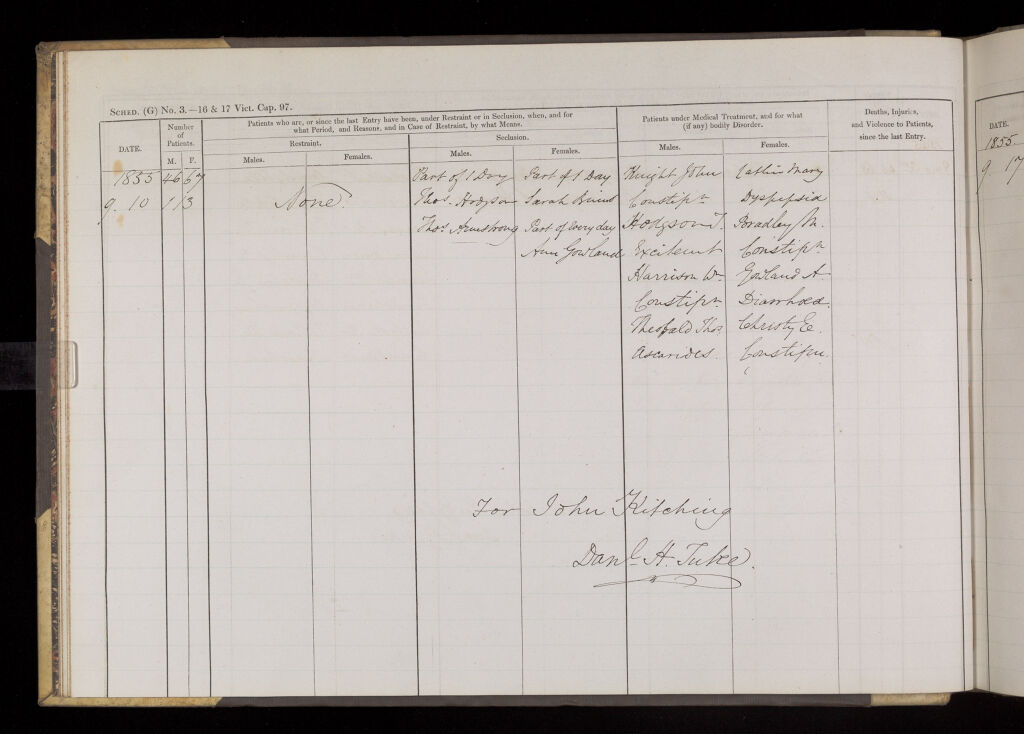 SCHED. (G) No. 3.—16 & 17 Vict. Cap. 97.
DATE.
Number of Patients.
M. F.
Patients who are, or since the last Entry have been, under Restraint or in Seclusion, when, and for
what Period, and Reasons, and in Case of Restraint, by what Means.
Restraint.
Males. Females.
Seclusion.
Males. Females.
Patients under Medical Treatment, and for what
(if any) bodily Disorder.
Males. Females.
Deaths, Injuries,
and Violence to Patients,
since the last Entry.
1855 46 67 Part of 1 Day Part of 1 Day Knight John Catlin Mary
9. 10 113 None. Thos. Hodgson Sarah Constipn Dyspepsia
Thos. Armstrong Part of every day Hodgson T. Bradley M.
Ann Gowland Excitemt Constipn
Harrison Wm Gowland A
Constipn Diarrhoea.
Theobald Thos. Christy E.
Ascarides. Constipn.
For John Kitching
Danl. H. Tuke.
DATE.
1855
9 17